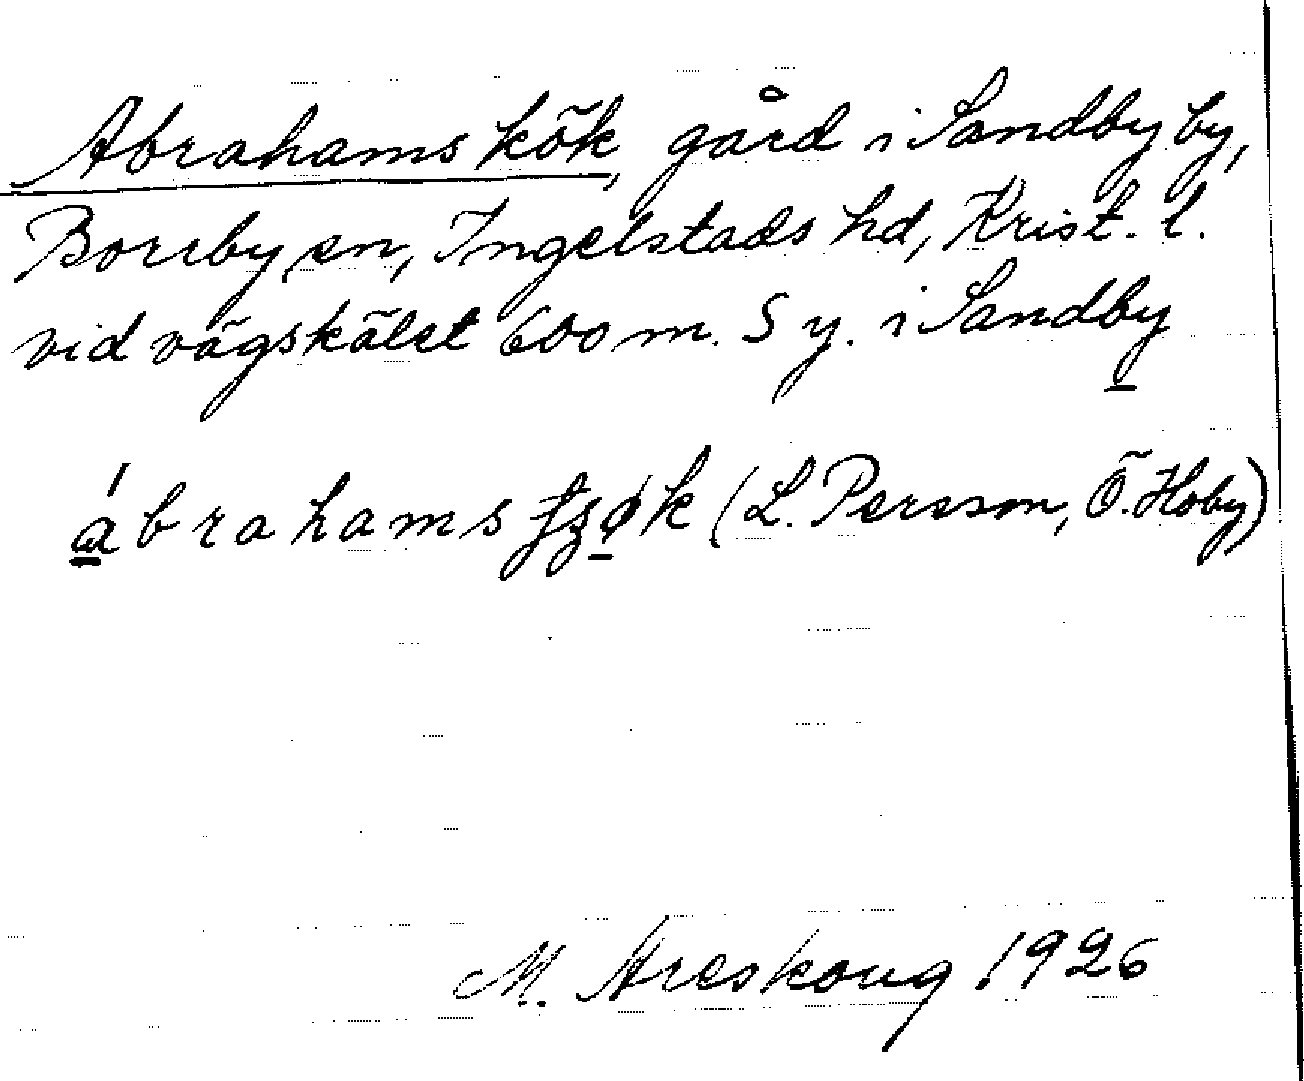 Abrahams kök, gård i Sandby by,
Borrby sn, Ingelstads hd, Krist. l.
vid vägskälet 600 m. S y. i Sandby
ábrahams køk (L. Persson, Ö. Hoby)
M. Areskoug 1926